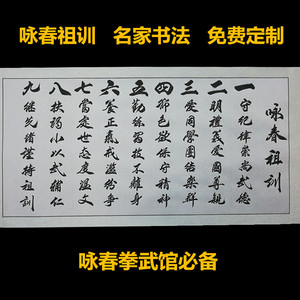 咏春祖训 名家书法 免费定制
咏春祖训
一 守纪律崇尚武德
二 明礼义爱国尊亲
三 爱同学团结乐群
四 节色欲保守精神
五 勤练习技不离身
六 养正气戒滥纷争
七 当处世态度温文
八 扶弱小以武辅仁
九 继先绪谨持祖训
咏春拳武馆必备